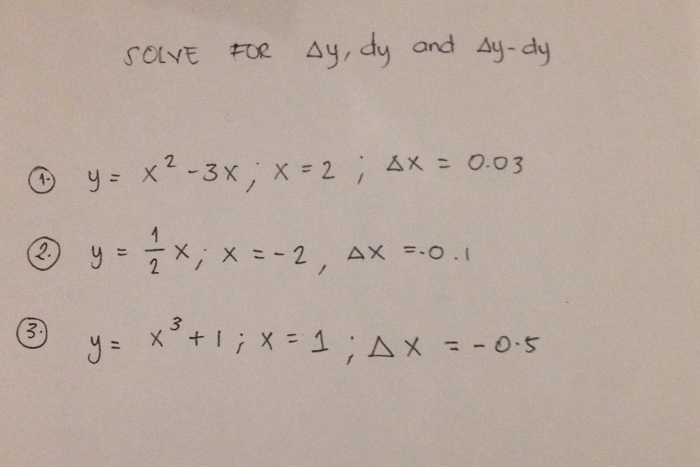 SOLVE FOR Δy, dy and Δy-dy
1. y = x² - 3x ; x = 2 ; Δx = 0.03
2. y = 1/2 x ; x = -2 , Δx = -0.1
3. y = x³ + 1 ; x = 1 ; Δx = -0.5